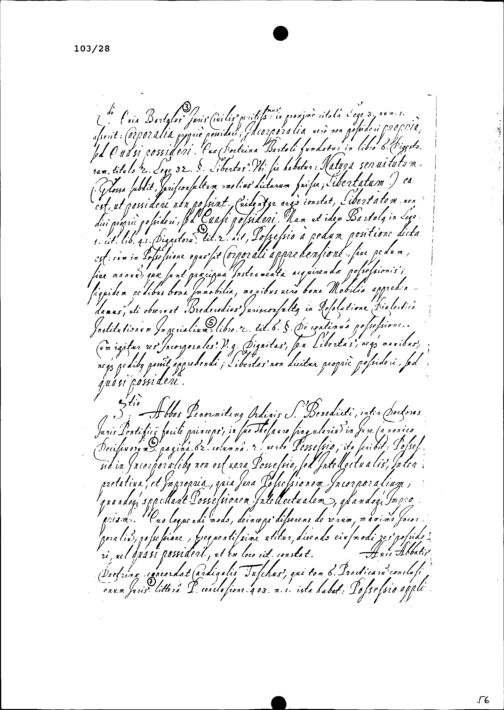 103/28
2 di Quia Bartolus Juris Civilis peritiss: in proxime citata Lege 2, num. 1.
asserit: Corporalia proprie possideri, Incorporalia vero non possideri proprie,
sed Quasi possideri. Quae Doctrina Bartoli fundatur in libro 6. Digesto
rum, titulo 2. Lege 32. §. Libertas. Ubi sic habetur: Natura servitutum.
(Glossa subdit, Jurisconsultum melius dicturum fuisse, Libertatum) ea
est, ut possideri non possint. Cum ergo constet, Libertatem non
dici proprie possideri, sed Quasi possideri. Nam ut idem Bartolus in Lege
1. cit. lib. 41. Digestorum tit. 2. ait, Possessio à pedum positione dicta
est: cum in Possessione opus sit Corporali apprehensione, sive pedum,
sive manus, quae sunt praecipua Instrumenta acquirendae possessionis;
siquidem pedibus bona Immobilia, manibus vero bona Mobilia apprehen
damus, uti observat Brederodius Jurisconsultus in Resolutione Dialectica
Institutionum Imperialium, libro 2. tit. 6. §. De continua possessione.
Cum igitur res Incorporales V. g. Dignitas, seu Libertas, neque manibus,
neque pedibus possit apprehendi; Libertas non dicitur proprie possideri, sed
quasi possideri.
3 tio Abbas Panormitanus Ordinis S. Benedicti, inter Doctores
Juris Pontificij facile princeps, in suo Thesauro singularium in Jure Canonico
Decisivorum, pagina 62. columna 2. verbo Possessio, ita scribit: Posses
sio in Incorporalibus non est vera Possessio, sed Intellectualis, Inter
pretativa, et Impropria, quia Jura Possessionem Incorporalium,
quandoque appellant Possessionem Intellectualem, quandoque Impro
priam. Quo loquendi modo, deinceps disserens de rerum, maxime Incor
poralium, possessione, frequentissime utitur, dicendo eiusmodi res posside
ri, vel quasi possideri, ut in loco cit. constat. Huic Abbatis
Doctrinae concordat Cardinalis Tuschus, qui tom 6. Practicarum conclusi
onum Juris littera P. conclusione 403. n. 1. ista habet: Possessio appli
56